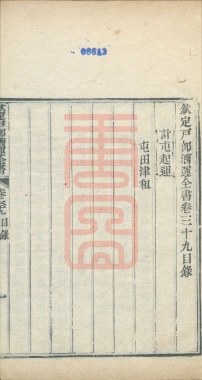 08643
欽定戶部漕運全書卷三十九目錄
計屯起運
屯田津租
欽定戶部漕運全書
卷三十九目錄